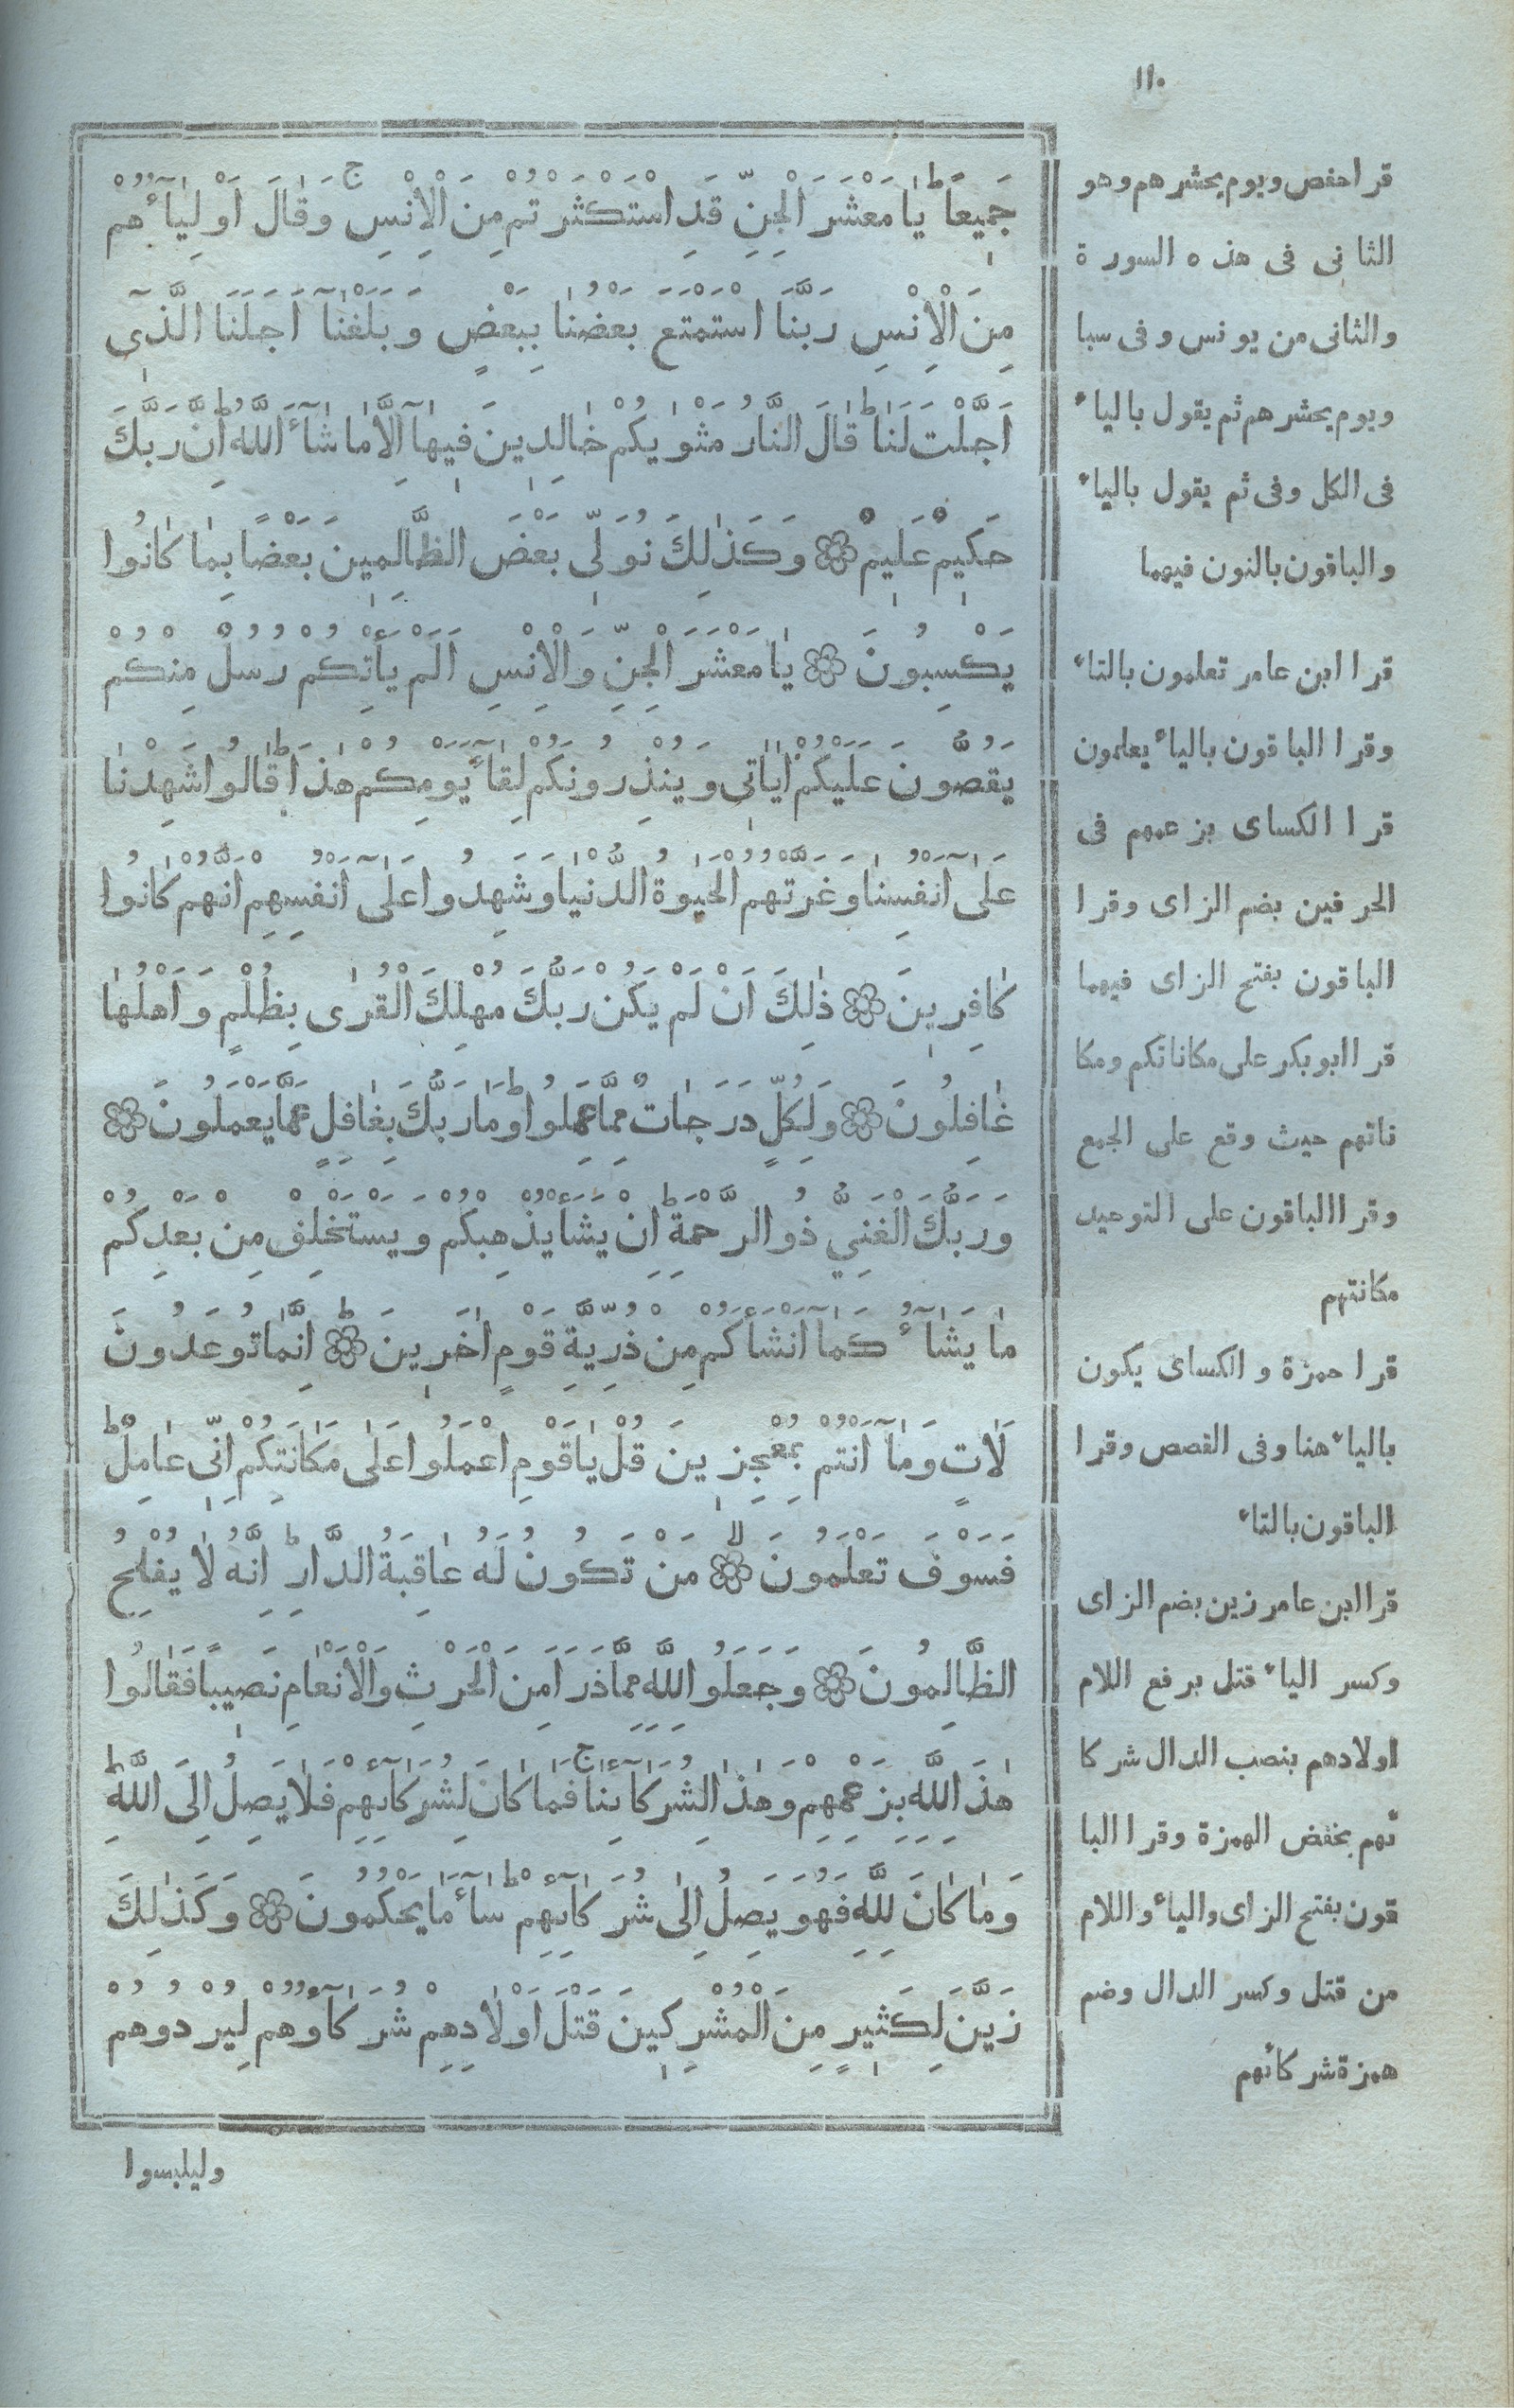 ١١٠
جَمِيعًا ط يٰا مَعْشَرَ الْجِنِّ قَدِ اسْتَكْثَرْتُمْ مِنَ الْاِنْسِ ج وَقٰالَ اَوْلِيٰٓاؤُهُمْ
مِنَ الْاِنْسِ رَبَّنَا اسْتَمْتَعَ بَعْضُنٰا بِبَعْضٍ وَبَلَغْنٰٓا اَجَلَنَا الَّذٖٓى
اَجَّلْتَ لَنٰا ط قٰالَ النَّارُ مَثْوٰيكُمْ خٰالِدٖينَ فٖيهٰٓا اِلَّا مٰا شٰٓاءَ اللّٰهُ ط اِنَّ رَبَّكَ
حَكٖيمٌ عَلٖيمٌ ۝ وَكَذٰلِكَ نُوَلّٖى بَعْضَ الظَّالِمٖينَ بَعْضًا بِمٰا كٰانُوا
يَكْسِبُونَ ۝ يٰا مَعْشَرَ الْجِنِّ وَالْاِنْسِ اَلَمْ يَأْتِكُمْ رُسُلٌ مِنْكُمْ
يَقُصُّونَ عَلَيْكُمْ اٰيٰاتٖى وَيُنْذِرُونَكُمْ لِقٰٓاءَ يَوْمِكُمْ هٰذَا ط قٰالُوا شَهِدْنٰا
عَلٰٓى اَنْفُسِنٰا وَغَرَّتْهُمُ الْحَيٰوةُ الدُّنْيٰا وَشَهِدُوا عَلٰٓى اَنْفُسِهِمْ اَنَّهُمْ كٰانُوا
كٰافِرٖينَ ۝ ذٰلِكَ اَنْ لَمْ يَكُنْ رَبُّكَ مُهْلِكَ الْقُرٰى بِظُلْمٍ وَاَهْلُهٰا
غٰافِلُونَ ۝ وَلِكُلٍّ دَرَجٰاتٌ مِمَّا عَمِلُوا ط وَمٰا رَبُّكَ بِغٰافِلٍ عَمَّا يَعْمَلُونَ ۝
وَرَبُّكَ الْغَنِيُّ ذُو الرَّحْمَةِ ط اِنْ يَشَأْ يُذْهِبْكُمْ وَيَسْتَخْلِفْ مِنْ بَعْدِكُمْ
مٰا يَشٰٓاءُ كَمٰٓا اَنْشَأَكُمْ مِنْ ذُرِّيَّةِ قَوْمٍ اٰخَرٖينَ ط ۝ اِنَّمٰا تُوعَدُونَ
لَاٰتٍ وَمٰٓا اَنْتُمْ بِمُعْجِزٖينَ قُلْ يٰا قَوْمِ اعْمَلُوا عَلٰى مَكٰانَتِكُمْ اِنّٖى عٰامِلٌ ط
فَسَوْفَ تَعْلَمُونَ لا ۝ مَنْ تَكُونُ لَهُ عٰاقِبَةُ الدَّارِ ط اِنَّهُ لٰا يُفْلِحُ
الظَّالِمُونَ ۝ وَجَعَلُوا لِلّٰهِ مِمَّا ذَرَاَ مِنَ الْحَرْثِ وَالْاَنْعٰامِ نَصٖيبًا فَقٰالُوا
هٰذَا لِلّٰهِ بِزَعْمِهِمْ وَهٰذٰا لِشُرَكٰٓائِنٰا ج فَمٰا كٰانَ لِشُرَكٰٓائِهِمْ فَلٰا يَصِلُ اِلَى اللّٰهِ ط
وَمٰا كٰانَ لِلّٰهِ فَهُوَ يَصِلُ اِلٰى شُرَكٰٓائِهِمْ ط سٰٓاءَ مٰا يَحْكُمُونَ ۝ وَكَذٰلِكَ
زَيَّنَ لِكَثٖيرٍ مِنَ الْمُشْرِكٖينَ قَتْلَ اَوْلٰادِهِمْ شُرَكٰٓاؤُهُمْ لِيُرْدُوهُمْ
وليلبسوا
قرا حفص ويوم يحشرهم وهو
الثانى فى هذه السورة
والثانى من يونس وفى سبا
ويوم يحشرهم ثم يقول بالياء
فى الكل وفى ثم يقول بالياء
والباقون بالنون فيهما
قرا ابن عامر تعلمون بالتاء
وقرا الباقون بالياء يعلمون
قرا الكساى بزعمهم فى
الحرفين بضم الزاى وقرا
الباقون بفتح الزاى فيهما
قرا ابوبكر على مكاناتكم ومكا
ناتهم حيث وقع على الجمع
وقرا الباقون على التوحيد
مكانتهم
قرا حمزة والكساى يكون
بالياء هنا وفى القصص وقرا
الباقون بالتاء
قرا ابن عامر زين بضم الزاى
وكسر الياء قتل برفع اللام
اولادهم بنصب الدال شركا
ئهم بخفض الهمزة وقرا البا
قون بفتح الزاى والياء واللام
من قتل وكسر الدال وضم
همزة شركائهم